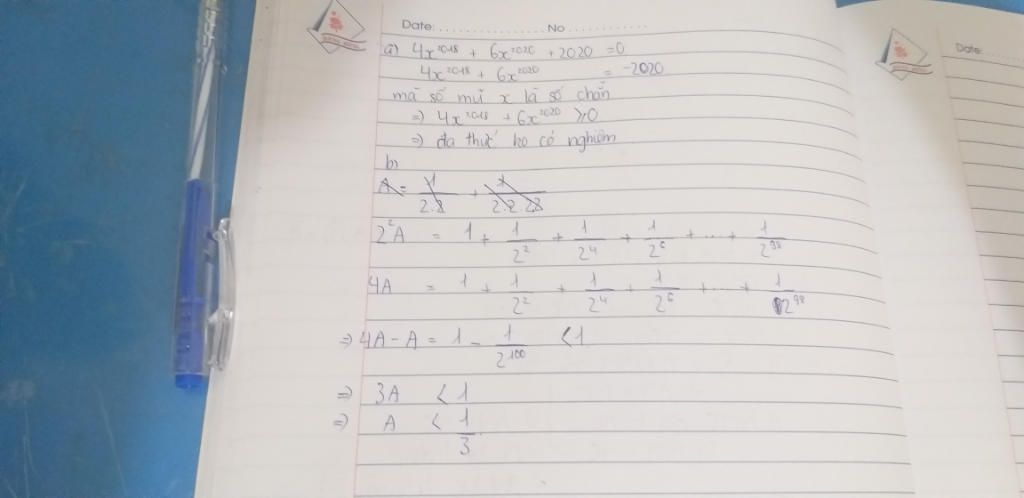 Date: No
a) 4x²⁰¹⁸ + 6x²⁰²⁰ + 2020 = 0
4x²⁰¹⁸ + 6x²⁰²⁰ = -2020
mà số mũ x là số chẵn
=> 4x²⁰¹⁸ + 6x²⁰²⁰ ≥ 0
=> đa thức ko có nghiệm
b)
A = 1/2.2 + 1/2.2.2.2
2²A = 1 + 1/2² + 1/2⁴ + 1/2⁶ + ... + 1/2⁹⁸
4A = 1 + 1/2² + 1/2⁴ + 1/2⁶ + ... + 1/2⁹⁸
=> 4A - A = 1 - 1/2¹⁰⁰ < 1
=> 3A < 1
=> A < 1/3
Date: